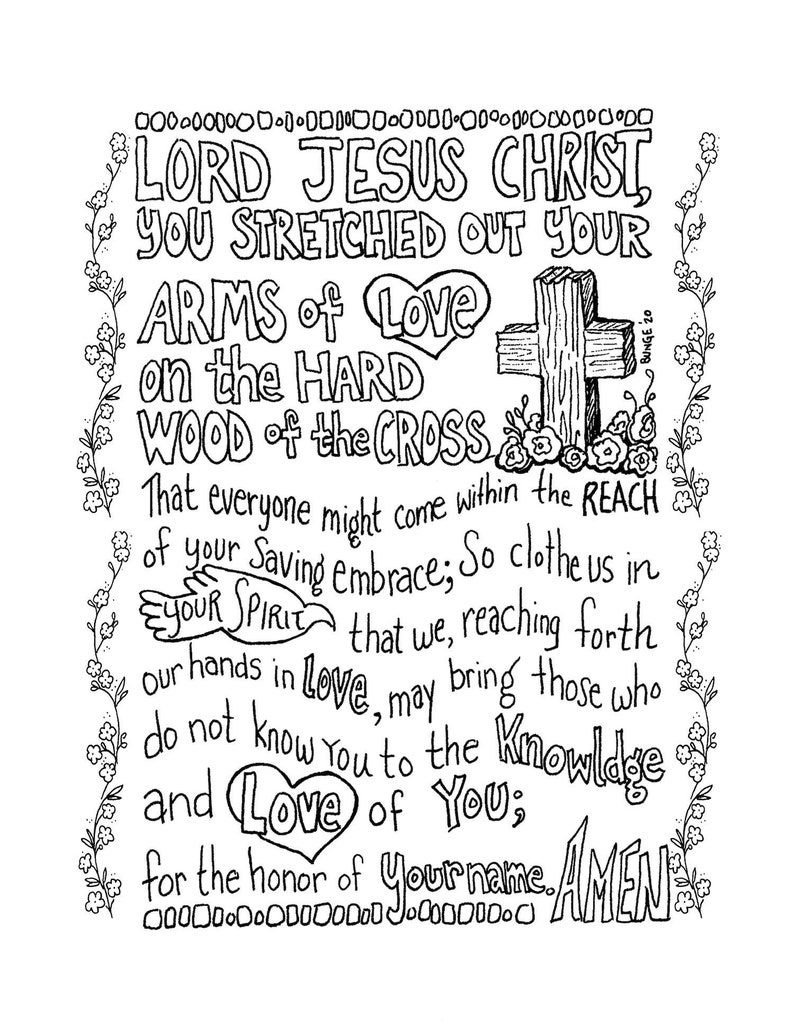 LORD JESUS CHRIST,
YOU STRETCHED OUT YOUR
ARMS of LOVE
on the HARD
WOOD of the CROSS
BUNGE 20
That everyone might come within the REACH
of your Saving embrace; So clothe us in
YOUR SPIRIT that we, reaching forth
our hands in LOVE, may bring those who
do not know You to the Knowldge
and LOVE of YOU;
for the honor of Your name. AMEN